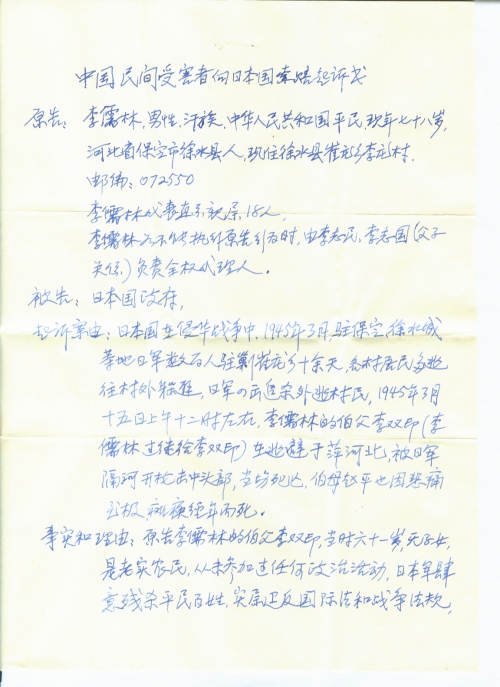 中国民间受害者向日本国索赔起诉书
原告：李儒林，男性，汗族、中华人民共和国平民现年七十八岁，
河北省保定市徐水县人，现住徐水县崔庄乡李庄村．
邮编：072550
李儒林代表直系亲属18人，
李儒林 不能执行原告 时，由李志民，李志国（父子
关係）负责全权代理人．
被告：日本国政府，
起诉案由：日本国在侵华战争中，1945年3月，驻保定，徐水城
等地日军数百人驻剿崔庄乡十余天，各村居民多逃
往村外 ，日军 追杀外逃村民，1945年3月
十五日上午十二时左右，李儒林的伯父李双印（李
儒林过继给李双印）在逃避于萍河北，被日军
隔河开枪击中头部，当场死亡，伯母赵平也因悲痛
至极， 经年而死．
事实和理由：原告李儒林的伯父李双印，当时六十一岁，无子女，
是老实农民，从未参加过任何政治活动，日本军肆
意残杀平民百姓，实属违反国际法和战争法规，